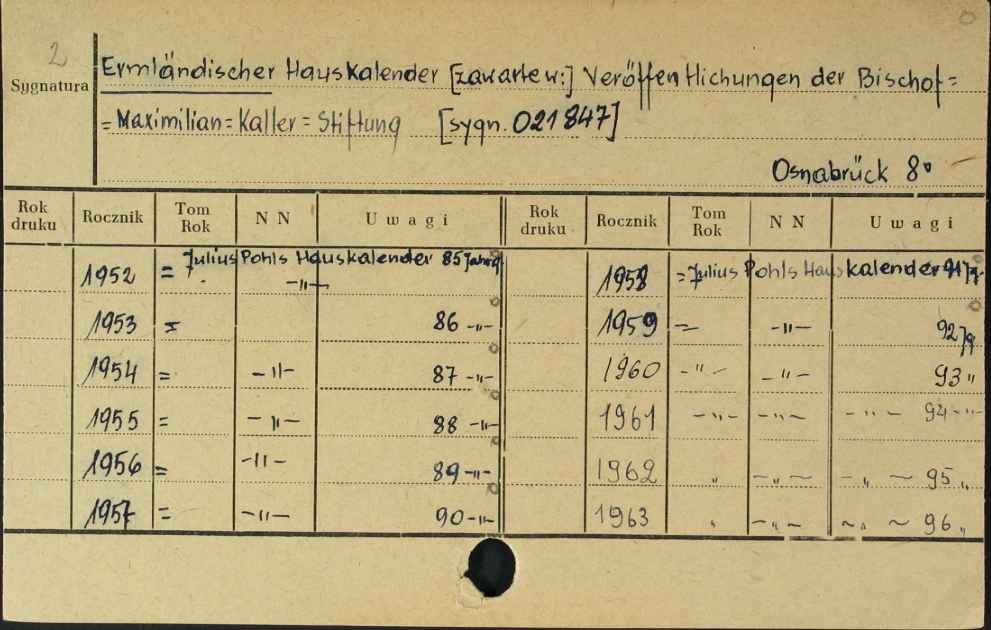 2
Sygnatura
Ermländischer Hauskalender [zawarte w:] Veröffentlichungen der Bischof=
=Maximilian=Kaller=Stiftung [sygn. 021847]
Osnabrück 8°
Rok druku Rocznik Tom Rok N N Uwagi Rok druku Rocznik Tom Rok N N Uwagi
1952 = Julius Pohls Hauskalender 85 Jahrg 1958 = Julius Pohls Hauskalender 91 Jg.
-"-
1953 = 86 -"- 1959 = -"- 92 Jg
1954 = -"- 87 -"- 1960 -"- -"- 93 "
1955 = -"- 88 -"- 1961 -"- -"- -"- 94 -"-
1956 = -"- 89 -"- 1962 " -"- -"- 95 "
1957 = -"- 90 -"- 1963 " -"- -"- 96 "